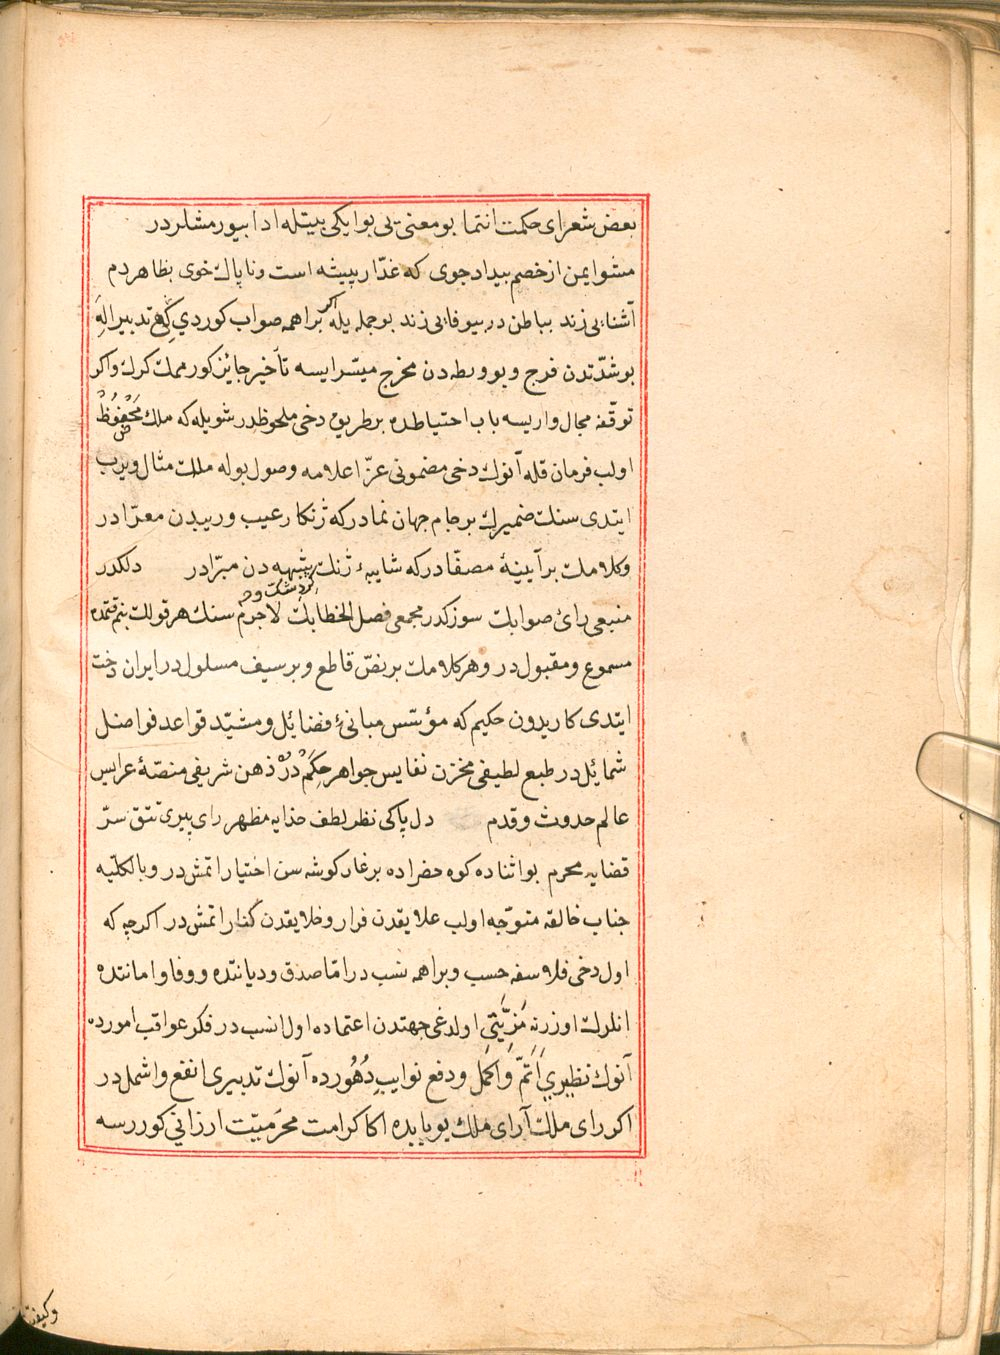 بعض شعرای حکمت انتما بو معنی یی بو ایکی بیتله ادا بیورمشلردر
مشو ایمن از خصم بیدادجوی که غدّار پیشه است و ناپاک خوی بظاهر دم
آشنایی زند بباطن در بیوفایی زند بو جمله یله اکر براهمه صواب کوردیکی تدبیر اله
بو شدّتدن فرج و بو ورطه دن مخرج میسّر ایسه تأخیر جایز کورممک کرک و اکر
توقّفه مجال وار یسه باب احتیاطده بر طریق دخی ملحوظدر شویله که ملک محفوظ
اولب فرمان قله آنوک دخی مضمونی عزّ اعلامه وصول بوله ملک مثال ویرب
ایتدی سنک ضمیرک بر جام جهان نمادر که ژنکار عیب و ریبدن معرّادر
و کلامک بر آیینهٔ مصفّادر که شایبهٔ ژنک شبهه دن مبرّادر دلکدر
منبعی رای صوابک سوزکدر مجمعی فصل الخطابک لاجرم سنک هر قولک بنم قتمده
مسموع و مقبولدر و هر کلامک بر نصّ قاطع و بر سیف مسلولدر ایران دخت
ایتدی کاریدون حکیم که مؤسّس مبانیٔ فضائل و مشیّد قواعد فواضل
شمائلدر طبع لطیفی مخزن نفایس جواهر حِکَم در ذهن شریفی منصّهٔ عرایس
عالم حدوث و قدم دل پاکی نظر لطف خدایه مظهر رای پیری تتق سرّ
قضایه محرم بو اثناده کوه حضراده بر غار کوشه سن اختیار اتمش در و بالکلّیه
جناب خالقه متوّجه اولب علایقدن فرار و خلایقدن کنار اتمش در اکرچه که
اول دخی فلاسفه حسب و براهمه نسب در امّا صدق و دیانتده و وفا و امانتده
انلرک اوزرنه مَزِیَّتِی اولدغی جهتدن اعتماده اول انسب در فکر عواقب اموره ده
آنوک نظیری اَتَمّ وَ اَکمَل و دفع نوایبِ دُهُورده آنوک تدبیری انفع و اشمل در
اکر رای ملک آرای ملک بو بابده اکا کرامت محرمیّت ارزانی کوررسه